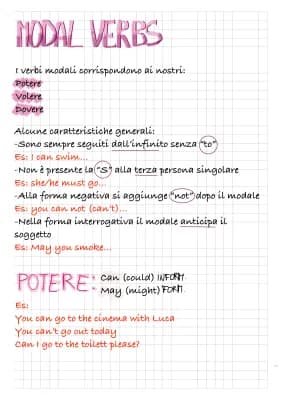 MODAL VERBS
I verbi modali corrispondono ai nostri:
Potere
Volere
Dovere
Alcune caratteristiche generali:
-Sono sempre seguiti dall'infinito senza "to"
Es: I can swim...
-Non è presente la "S" alla terza persona singolare
Es: she/he must go...
-Alla forma negativa si aggiunge "not" dopo il modale
Es: you can not (can't)...
-Nella forma interrogativa il modale anticipa il
soggetto
Es: May you smoke...
POTERE: Can (could) INFORM.
May (might) FORM.
Es:
You can go to the cinema with Luca
You can't go out today
Can I go to the toilett please?